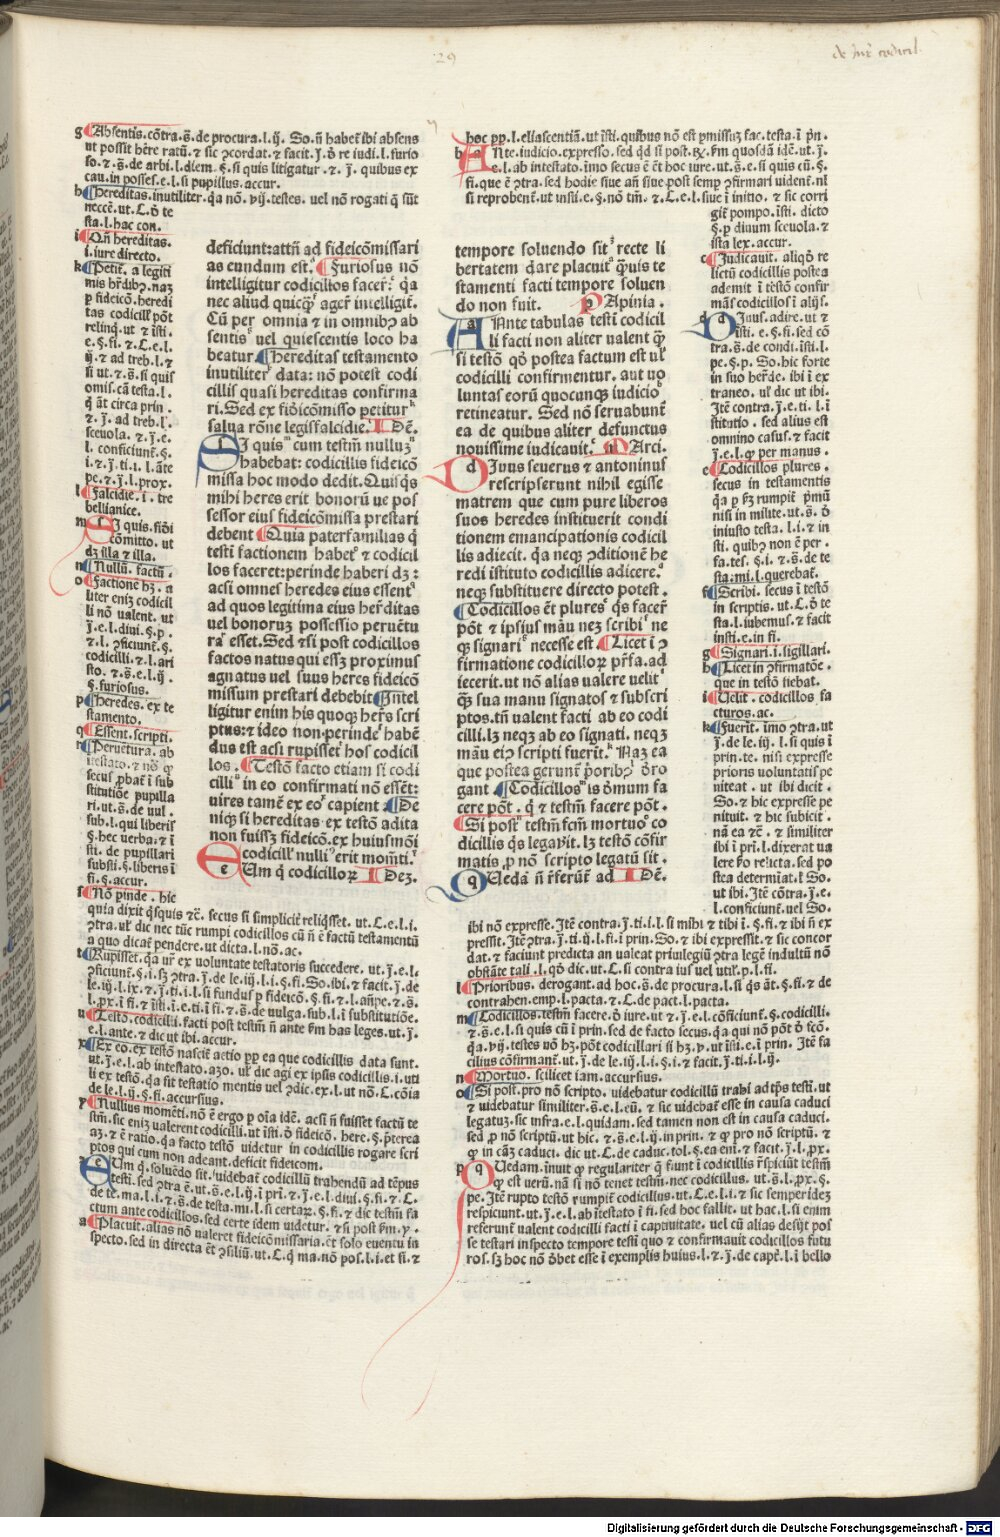 29
de iure codicil.
g Absentis.cōtra.s̄.de procura.l.ij. So.n̄ habet ibi absens
ut possit hēre ratū.⁊ sic ɔcordat.⁊ facit.j̄.ō re iudi.l.furio
so.⁊.s̄.de arbi.l.diem.§.si quis litigatur.⁊.j̄.quibus ex
cau.in posses.e.l.si pupillus.accur.
h Hereditas.inutiliter.q̄a nō.vij.testes.vel nō rogati q̄ sūt
neccē.ut.C.ō te
sta.l.hac con.
i Qn̄ hereditas.
i.iure directo.
k Petit̄.a legiti
mis hr̄dibꝫ.naꝫ
p fideicō.heredi
tas codicill' pōt
relinq̄.ut ⁊ īsti.
e.§.fi.⁊.C.e.l.
ij.⁊ ad treb.l.⁊
si ut.⁊ s̄.si quis
omis.cā testa.l.
q̄ āt circa prin.
⁊.j̄.ad treb.l'.
sceuola.⁊.j̄.e.
l.conficiunt̄.§.
i.⁊.j̄.ti.i.l.āte
pe.⁊.j̄.l.prox.
l Falcidie.i.tre
bellianice.
m Si quis.fiōi
cōmitto.ut
dꝫ illa ⁊ illa.
n Nullū.factū.
o Factionē hꝫ.a
liter eniꝫ codicil
li nō ualent.ut
j̄.e.l.diui.§.p.
⁊.l.ɔficiunt̄.§.
codicilli.⁊.l.ari
sto.⁊.s̄.e.l.ij.
§.furiosus.
p Heredes.ex te
stamento.
q Essent.scripti.
r Peruētura.ab
ītestato.⁊ nō ꝙ
secus p̄bat̄ ī sub
stitutiōe pupilla
ri.ut.s̄.de uul.
sub.l.qui liberis
§.hec uerba.⁊ ī
sti.de pupillari
substi.§.liberis ī
fi.§.accur.
s Nō pinde.hic
quia dixit q̄squis ⁊c̄.secus si simplicit̄ reliq̄sset.ut.C.e.l.i.
ɔtra.ul' dic nec tūc rumpi codicillos cū n̄ ē factū testamentū
a quo dicat̄ pendere.ut dicta.l.nō.ac.
t Rupisset.q̄a ur̄ ex voluntate testatoris succedere.ut.j̄.e.l.
ɔficiunt̄.§.i.sꝫ ɔtra.j̄.de le.iij.l.i.§.fi.So.ibi.⁊ facit.j̄.de
le.iij.l.ix.⁊.j̄.ti.i.l.si fundus p fideicō.§.fi.⁊.l.an̄pe.⁊.s̄.
l.pꝛ.i fi.⁊ īsti.i.e.ti.i fi.⁊.s̄.de uulga.sub.l.i substitutiōe.
u Testō.codicilli facti post testm̄ n̄ ante f̄m has leges.ut.j̄.
e.l.ante.⁊ dic ut ibi.accur.
x Ex eo.ex testō nascit̄ actio pp ea que codicillis data sunt.
ut.j̄.e.l.ab intestato.azo.ul' dic agi ex ipsis codicillis.i.uti
li ex testō.q̄a sit testatio mentis vel ɔdic.ex.l.ut nō.C.cōia
de le.l.ij.§.fi.accursius.
y Nullius momēti.nō ē ergo p oīa idē.acsi n̄ fuisset factū te
stm̄.sic eniꝫ ualerent codicilli.ut īsti.ō fideicō.here.§.p̄terea
aꝫ.⁊ ē ratio.q̄a facto testō uidetur in codicillis rogare scri
ptos qui cum non adeant.deficit fideicom.
z Eum q̄.soluēdo sit.uidebat̄ codicillū trahendū ad tēpus
testi.sed ɔtra ē.ut.s̄.e.l.ij.i pri.⁊ j̄.e.l.diui.§.fi.⁊ C.
de te.ma.l.i.⁊.s̄.de testa.mi.l.si certarꝫ.§.fi.⁊ dic testm̄ fa
ctum ante codicillos.sed certe idem uidetur.⁊ si post f̄m.y.
a Placuit.alias nō ualeret fideicōmissaria.ēt solo euentu in
specto.sed in directa ēt ɔsiliū.ut.C.q̄ ma.nō pos.l.i.et fi.⁊
deficiunt:attn̄ ad fideicōmissari
as eundum est. Furiosus nō
intelligitur codicillos facer̄: q̄a
nec aliud quicꝙ̄ ager̄ intelligit̄.
Cū per omnia ⁊ in omnibꝫ ab
sentis uel quiescentis loco ha
beatur. Hereditas testamento
inutiliter data: nō potest codi
cillis quasi hereditas confirma
ri.Sed ex fiōicōmisso petitur
salua rōne legisfalcidie. I Dē.
Si quis cum testm̄ nulluꝫ
habebat: codicillis fideicō
missa hoc modo dedit.Quisq̄s
mihi heres erit bonorū ue pos
sessor eius fideicōmissa prestari
debent Quia paterfamilias q̄
testi factionem habet ⁊ codicil
los faceret:perinde haberi dꝫ:
acsi omnes heredes eius essent
ad quos legitima eius her̄ditas
vel bonoruꝫ possessio peruētu
ra esset.Sed ⁊si post codicillos
factos natus qui esset proximus
agnatus vel suus heres fideicō
missum prestari debebit Intel
ligitur enim his quoqꝫ her̄s scri
ptus:⁊ ideo non perinde habē
dus est acsi rupisset hos codicil
los. Testō facto etiam si codi
cilli in eo confirmati nō essēt:
vires tamē ex eo capient De
niqꝫ si hereditas ex testō adita
non fuisset fideicō.ex huiusmōi
codicill' nulli' erit momēti.
Eum q̄ codicillorꝫ I Deꝫ.
hoc pp.l.eliascentiā.ut īsti.quibus nō est pmissuꝫ fac.testa.i pn̄.
b Ante.iudicio.expresso.sed q̄d si post.℞.f̄m quosdā idē.ut.j̄.
e.l.ab intestato.īmo secus ē ēt hoc iure.ut.s̄.e.si quis cū.§.
fi.que ē ɔtra.sed hodie siue an̄ siue post semp ɔfirmari uident̄.nl
si reprobent̄.ut insti.e.§.nō tm̄.⁊.C.e.l.siue i initio.⁊ sic corri
git̄ pompo.isti.dicto
§.p diuum sceuola.⁊
ista lex.accur.
c Judicauit.aliqō re
lictū codicillis postea
ademit i testō confir
mās codicillos i alijs.
d Diuus.adire.ut ⁊
īsti.e.§.fi.sed cō
tra.s̄.de condi.isti.l.
pe.§.p.So.hic forte
in suo her̄de.ibi ī ex
traneo.ul' dic ut ibi.
Itē contra.j̄.e.ti.l.ī
stitutio.sed alius est
omnino casus.⁊ facit
j̄.e.l.ꝙ per manus.
e Codicillos plures.
secus in testamentis
q̄a p pꝫ rumpit̄ p̄mū
nisi in milite.ut.s̄.ō
iniusto testa.l.i.⁊ in
sti.quibꝫ non ē per.
fa.tes.§.i.⁊.s̄.de te
sta.mi.l.querebat̄.
f Scribi.secus ī testō
in scriptis.ut.C.ō te
sta.l.iubemus.⁊ facit
insti.e.in fi.
g Signari.i.sigillari.
h Licet in ɔfirmatōe.
que in testō fiebat.
i Uelit.codicillos fa
cturos.ac.
k Fuerit.īmo ɔtra.ut
j̄.de le.iij.l.si quis ī
prin.te.nisi expresse
prioris voluntatis pe
niteat.ut ibi dicit.
So.⁊ hic expresse pe
nituit.⁊ hic subicit.
nā ea ⁊c̄.⁊ similiter
ibi ī pri.l.dixerat ua
lere ꝑo relicta.sed po
stea determīat.l.So.
ut ibi.Itē cōtra.j̄.e.
l.conficiunt̄.vel So.
tempore soluendo sit recte li
bertatem dare placuit q̄uis te
stamenti facti tempore soluen
do non fuit. Papinia.
Ante tabulas testi codicil
li facti non aliter valent ꝙ̄
si testō qō postea factum est ul'
codicilli confirmentur. aut uo
luntas eorū quocunqꝫ iudicio
retineatur. Sed nō seruabunt̄
ea de quibus aliter defunctus
nouissime iudicauit. Marci.
Diuus seuerus ⁊ antoninus
rescripserunt nihil egisse
matrem que cum pure liberos
suos heredes instituerit condi
tionem emancipationis codicil
lis adiecit. q̄a neqꝫ ɔditionē he
redi īstituto codicillis adicere.
neqꝫ substituere directo potest.
Codicillos ēt plures q̄s facer̄
pōt ⁊ ipsius māu neꝫ scribi ne
ꝙ signari necesse est. Licet i ɔ
firmatione codicillorꝫ pr̄fa.ad
iecerit.ut nō alias valere uelit
ꝙ̄ sua manu signatos ⁊ subscri
ptos.tn̄ ualent facti ab eo codi
cilli.lꝫ neqꝫ ab eo signati. neqꝫ
māu eiꝰ scripti fuerit. Naꝫ ea
que postea gerunt̄ p̄oribꝫ ōro
gant Codicillos is ōmum fa
cere pōt.q̄ ⁊ testm̄ facere pōt.
Si post testm̄ fc̄m mortuo co
dicillis q̄s legauit.lꝫ testō cōfir
matis ꝓ nō scripto legatū sit.
Quedā n̄ rr̄ferūt ad I Dē.
ibi nō expresse.Itē contra.j̄.ti.i.l.si mihi ⁊ tibi ī.§.fi.⁊ ibi n̄ ex
pressit.Itē ɔtra.j̄.ti.ij.l.fi.i prin.So.⁊ ibi expressit.⁊ sic concor
dat.⁊ faciunt predicta an ualeat priuilegiū ɔtra legē indultū nō
obstāte tali.l.qō dic.ut.C.si contra ius vel util'.p.l.fi.
l Prioribus.derogant.ad hoc.s̄.de procura.l.si q̄s āt.§.fi.⁊ de
contrahen.emp.l.pacta.⁊.C.de pact.l.pacta.
m Codicillos.testm̄ facere.ō iure.ut ⁊ j̄.e.l.cōficiunt̄.§.codicilli.
⁊.s̄.e.l.si quis cū i prin.sed de facto secus.q̄a qui nō pōt ō fcō.
q̄a.vij.testes uō hꝫ.pōt codicillari si hꝫ.v.ut īsti.e.i prin.Itē fa
cilius cōfirmant̄.ut j̄.de le.iij.l.i.§.i.⁊ facit.j̄.ti.i.l.ij.
n Mortuo.scilicet iam.accursius.
o Si post.pro nō scripto.uidebatur codicillū trahi ad tp̄s testi.ut
⁊ uidebatur similiter.s̄.e.l.eū.⁊ sic uidebat̄ esse in causa caduci
legatuꝫ.sic infra.e.l.quidam.sed tamen non est in causa caduci.
sed ꝓ nō scriptū.ut hic.⁊.s̄.e.l.ij.in prin.⁊ ꝙ pro nō scriptū.⁊
ꝙ in cāꝫ caduci.dic ut.C.de caduc.tol.§.ea eni.⁊ facit.j̄.l.pꝛ.
p Quedam.inuit ꝙ regulariter q̄ fiunt i codicillis r̄spiciūt testm̄
ꝙ est verū.nā si nō tenet testm̄.nec codicillus.ut.s̄.l.pꝛ.§.
pe.Itē rupto testō rumpit̄ codicillus.ut.C.e.l.i.⁊ sic semper idez
respiciunt.ut j̄.e.l.ab ītestato i fi.sed hoc fallit.ut hac.l.si enim
referunt̄ ualent codicilli facti i captiuitate.uel cū alias desijt pos
se testari inspecto tempore testi quo ⁊ confirmauit codicillos futu
ros.sꝫ hoc nō ōbet esse ī exemplis huius.l.⁊.j̄.de capt̄.l.i bello
Digitalisierung gefördert durch die Deutsche Forschungsgemeinschaft - DFG